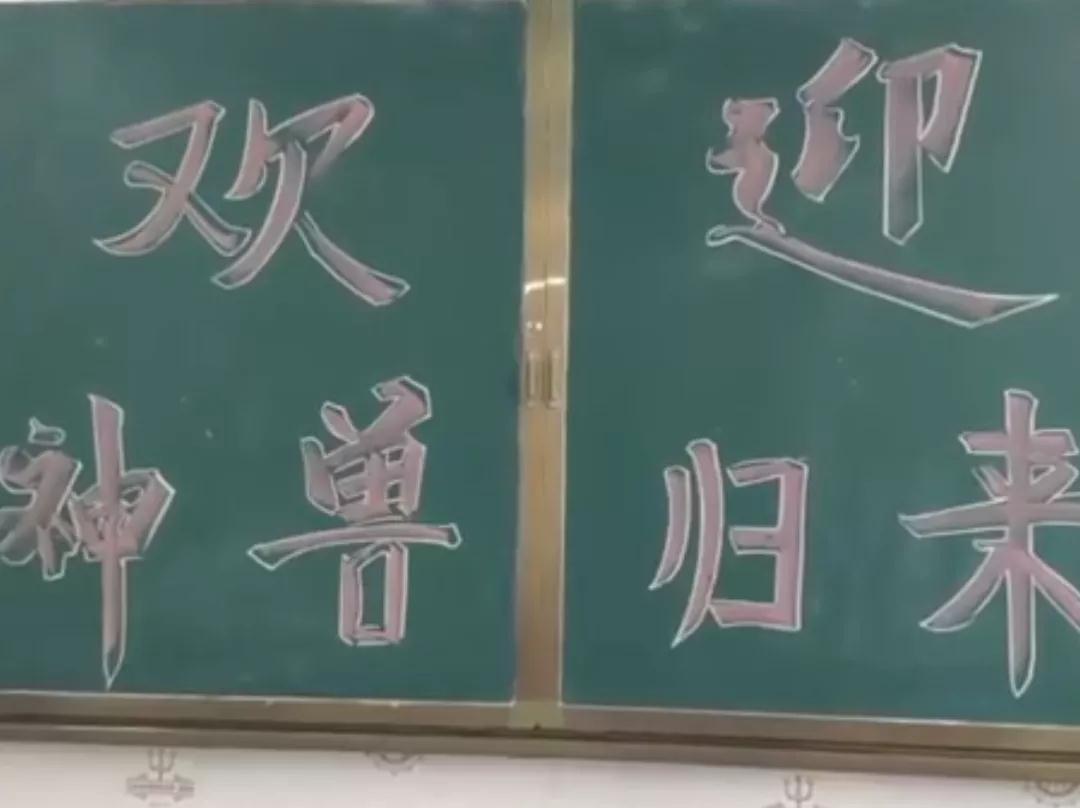 欢迎
神兽归来